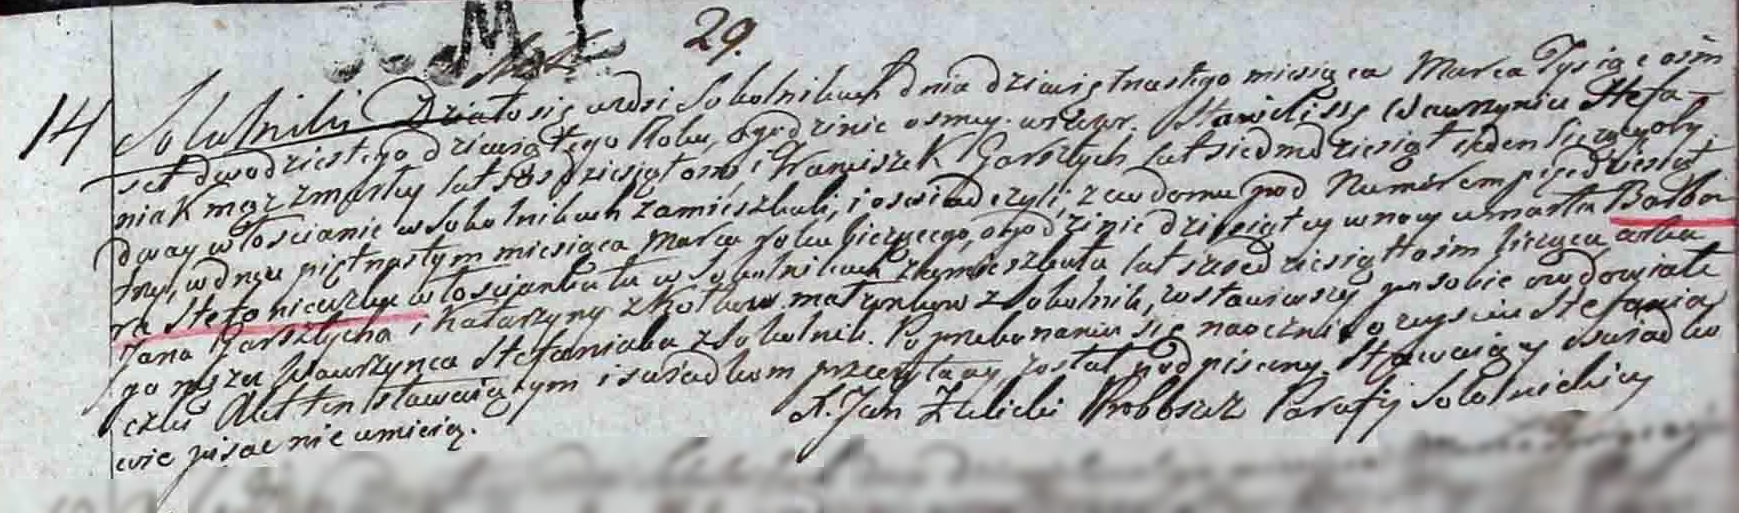 29.
14
Sokolniki Działo się w wsi Sokolnikach dnia dziewiętnastego miesiąca Marca Tysiąc ośm
set dwadziestego dziewiątego Roku, o godzinie osmey. w wiecz. Stawili się Wawrzyniec Stefa-
niak mąż zmarłey lat i Franciszek Garsztych lat siedmdziesiąt jeden liczący oby
dway włościanie w Sokolnikach zamieszkali, i oświadczyli, z domu pod Numerem pięćdziesiąt
trzy, w dniu piętnastym miesiąca Marca roku bieżącego, o godzinie dziesiątey w nocy umarła Barba
ra Stefaniaczka włościanka w Sokolnikach zamieszkała lat sześćdziesiąt ośm licząca, córka
Jana Garsztycha i Katarzyny z małżonków z Sokolnik, zostawiwszy po sobie owdowiałe
go męża Wawrzyńca Stefaniaka z Sokolnik. Po przekonaniu się naocznie o zejściu Stefania
czki Akt ten stawaiącym i świadkom przeczytany, został podpisany. Stawaiący i świadko
wie pisać nie umieią.
X. Jan Zulicki Proboszcz Parafij Sokolnickiey